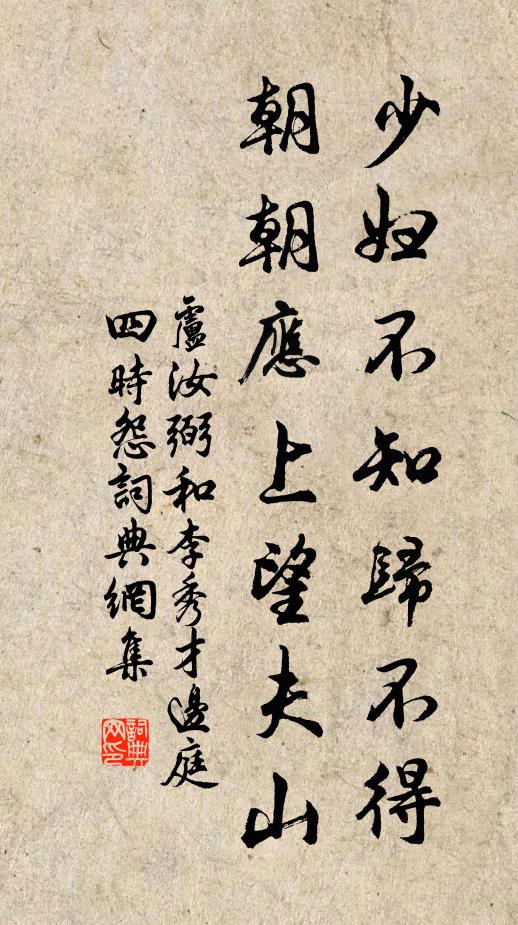 少妇不知歸不得
朝朝應上望夫山
盧汝弼和李秀才邊庭
四時怨詞典網集
詞典
網印